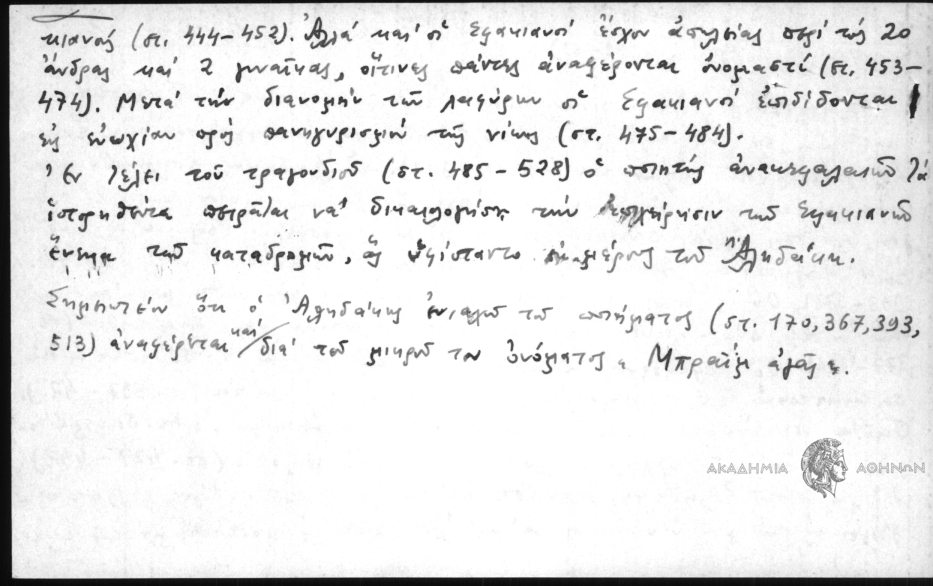 κιανούς (στ. 444-452). Ἀλλά καί οἱ Σφακιανοί ἔσχον ἀπωλείας περί τούς 20
ἄνδρας καί 2 γυναῖκας, οἵτινες πάντες ἀναφέρονται ὀνομαστί (στ. 453-
474). Μετά τήν διανομήν τῶν λαφύρων οἱ Σφακιανοί ἐπιδίδονται
εἰς εὐωχίαν πρός πανηγυρισμόν τῆς νίκης (στ. 475-484).
Ἐν τέλει τοῦ τραγουδιοῦ (στ. 485-528) ὁ ποιητής ἀνακεφαλαιῶν τά
ἱστορηθέντα πειρᾶται νά δικαιολογήσῃ τήν ἐπιχείρησιν τῶν Σφακιανῶν
ἕνεκα τῶν καταδρομῶν, ἅς ὑφίσταντο ἐκ μέρους τοῦ Ἀληδάκη.
Σημειωτέον ὅτι ὁ Ἀληδάκης ἐνιαχοῦ τοῦ ποιήματος (στ. 170, 367, 393,
513) ἀναφέρεται καί διά τοῦ μικροῦ του ὀνόματος « Μπραΐμ ἀγᾶς ».
ΑΚΑΔΗΜΙΑ ΑΘΗΝΩΝ